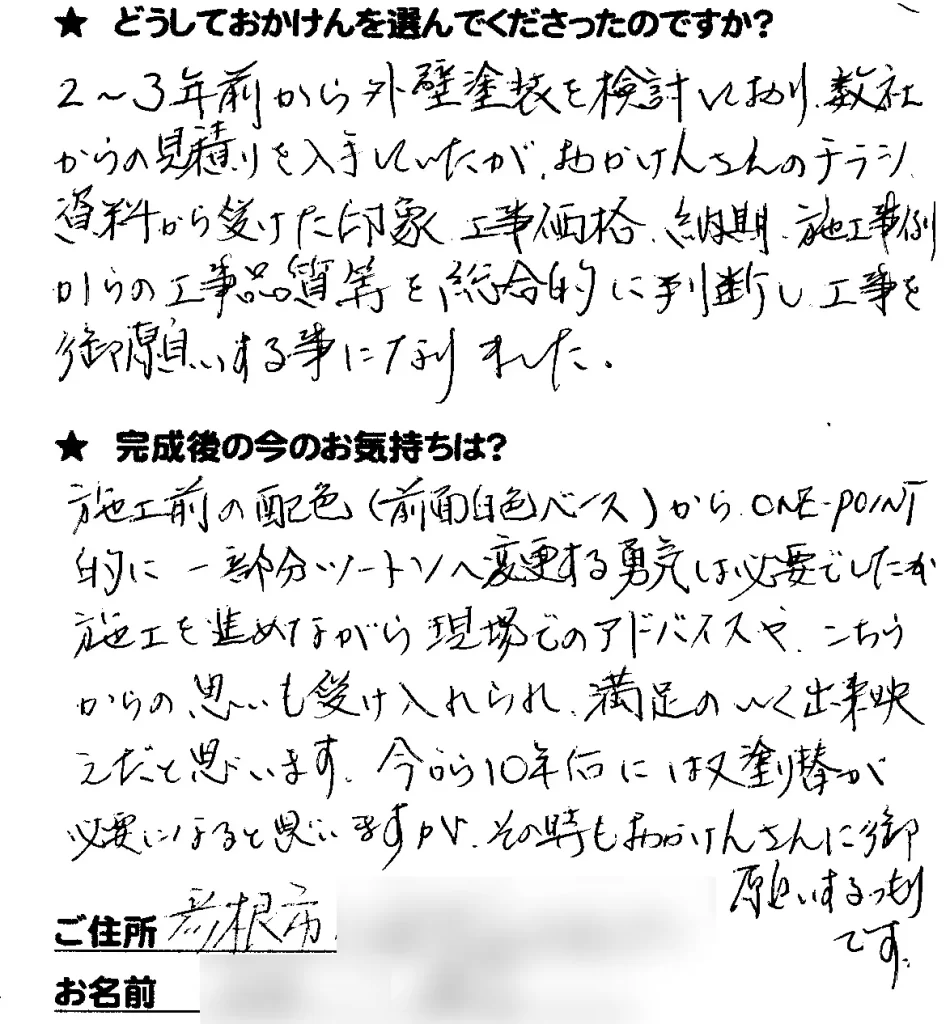 ★ どうしておかけんを選んでくださったのですか?
2～3年前から外壁塗装を検討しており、数社
からの見積りを入手していたが、おかけんさんのチラシ、
資料から受けた印象、工事価格、納期、施工事例
からの工事品質等を総合的に判断し、工事を
御願いする事になりました。
★ 完成後の今のお気持ちは?
施工前の配色(前面白色ベース)から、ONE-POINT
的に一部分ツートンへ変更する勇気は必要でしたが
施工を進めながら現場でのアドバイスや、こちら
からの思いも受け入れられ、満足のいく出来映
えだと思います。今から10年后には又塗り替が
必要になると思いますが、その時もおかけんさんに御
願いするつもり
です。
ご住所 彦根市
お名前